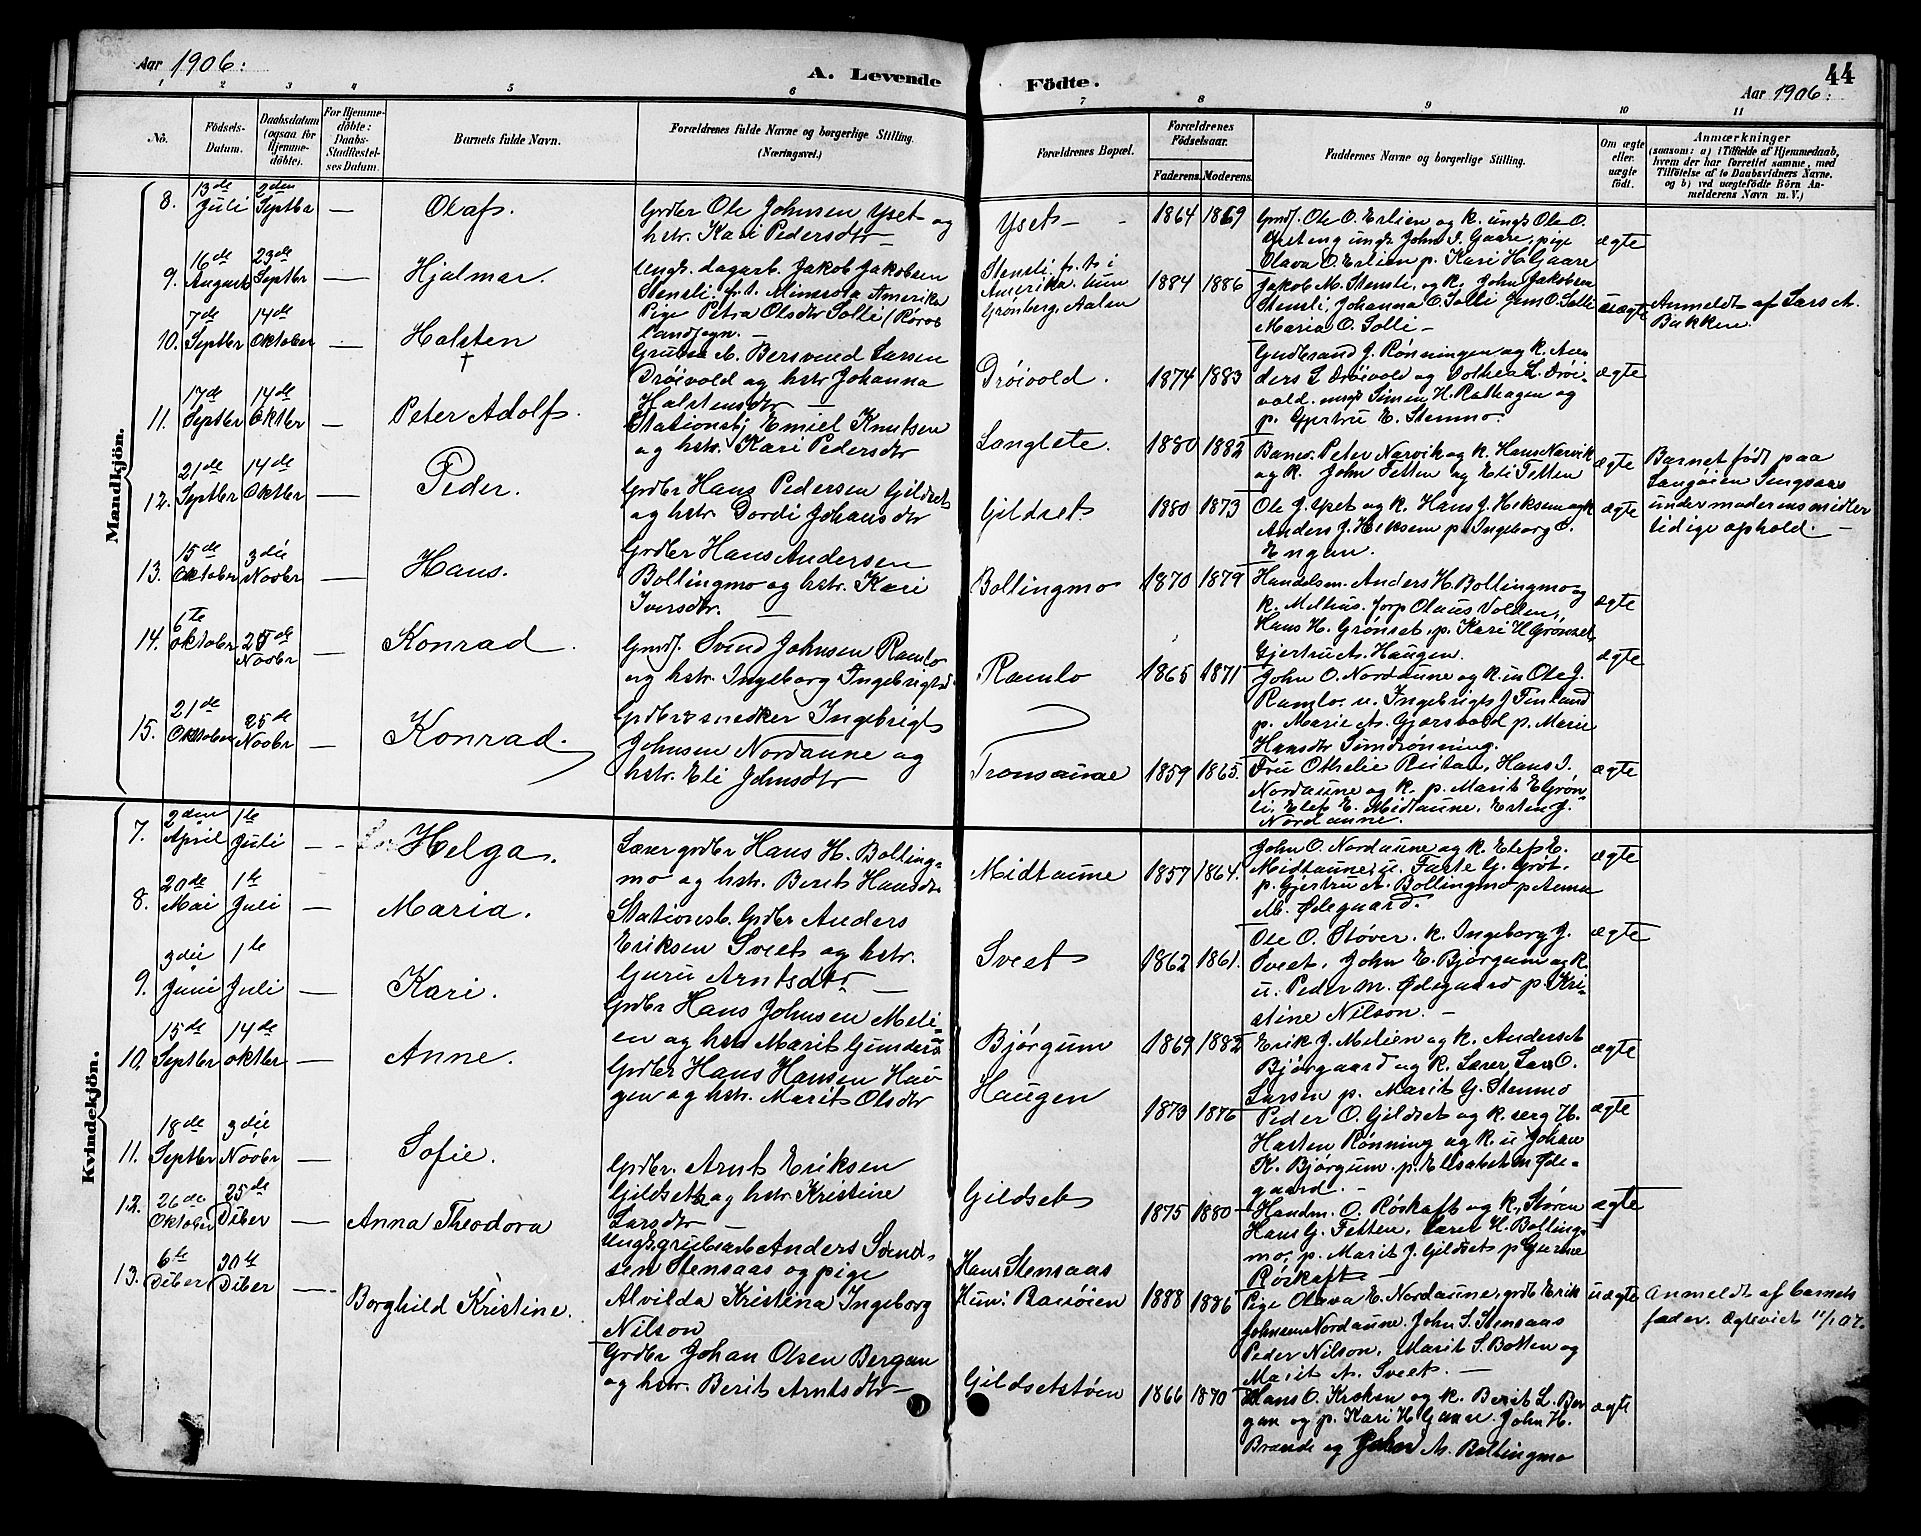 Aar 1906.
A. Levende
Födte.
44
Aar 1906.
1 2 3 4 5 6 7 8 9 10 11
No.
Födsels-
Datum.
Daabsdatum
(ogsaa for
Hjemme-
döbte).
For Hjemme-
döbte:
Daabs-
Stadfæstel-
ses Datum.
Barnets fulde Navn.
Forældrenes fulde Navne og borgerlige Stilling.
(Næringsvei.)
Forældrenes Bopæl.
Forældrenes
Födselsaar.
Faderens. Moderens.
Faddernes Navne og borgerlige Stilling.
Om ægte
eller
uægte
födt.
Anmærkninger
(saasom: a) i Tilfælde af Hjemmedaab,
hvem der har forrettet samme, med
Tilföielse af to Daabsvidners Navne.
og b) ved uægtefödte Börn An-
melderens Navn m. V.)
Mandkjön.
8. 13de Juli 2den Septbr — Olaf.
Grdbr Ole Johnsen Yset og
hstr. Kari Pedersdtr —
Yset — 1864 1869
Gmdj. Ole O. Erlien og k. ungk Ole O.
ungk. John J. Gaare, pige
Olava O. Erlien p. Kari H. Gaare
ægte
9. 16de August 23de Septbr — Hjalmar.
Ungk. dagarb. Jakob Jakobsen
Stensli, f. t. Amerika
Pige Petra Olsdtr Solli (Røros
Landsogn. —
Stensli f. t. i
Amerika. hun
Grønberg, Aalen
1884 1886
Jakob M. Stensli, og k. John Jakobsen
Stensli, Johanna O. Solli Jens O. Solli
Maria O. Solli —
uægte
Anmeldt af Lars A.
Bakken.
10. 7de Septbr 14de Oktober — Halsten
†
Grubea. A. Bersvend Larsen
Drøivold og hstr Johanna
Halstensdtr —
Drøivold. 1874 1883
Gudbrand J. Rønningen og k. An-
ders L Drøivold og Dorthea L. Drøi-
vold. ungk Simen H. Rathagen og
p. Gjertru E. Stenmo.
ægte
11. 17de Septbr 14de Oktbr — Peter Adolf.
Stationsbj Emiel Knutsen
og hstr. Kari Pedersdtr
Langlete. 1880 1882
Banev. Peter Narvik og k. Hans Narvik
og k. John Tetten og Eli Tetten
ægte
Barnet født paa
Langøien Singsaas
under moderens midler
tidige ophold. —
12. 21de Septbr 14de Oktbr — Peder.
Grdbr Hans Pedersen Gildset
og hstr. Dordi Johansdtr
Gildset. 1880 1873
Ole J. Yset og k. Hans J. Heksem og k
Anders J. Heksem p. Ingeborg O.
Engan.
ægte
13. 15de Oktober 3die Novbr — Hans.
Grdbr Hans Andersen
Boltingmo og hstr. Kari
Iversdtr. —
Boltingmo 1870 1879
Handelsm. Anders H. Boltingmo og
k. Melhus. Jorp Olaus Volden,
Hans H. Grønset, p. Kari H Grønset
Gjertru A. Haugen.
ægte
14. 6te Oktober 25de Novbr — Konrad.
Gmdj. Svend Johnsen Ramlo
og hstr. Ingeborg Ingebrigtsd
Ramlo 1865 1871
John O. Nordaune og k. un Ole J.
Ramlo. u. Ingebrigt J Finland
p. Marie A. Gjersvold p. Marie
Hansdtr Simdrønning.
ægte
15. 21de Oktober 25de Novbr — Konrad.
Grdbr snedker Ingebrigt
Johnsen Nordaune og
hstr. Eli Johnsdtr
Tronsaune 1859 1865.
Fru Othelie Reitan, Hans J.
Nordaune og k. p. Marit E Grøn-
li, Elef E. Midtaune, Esten J.
Nordaune.
ægte
Kvindekjön.
7. 2den April 1te Juli — Helga.
Lærer grdbr Hans H. Bolting-
mo og hstr. Berit Hansdtr
Midtaune 1857 1864.
John O. Nordaune og k. Elef E.
Midtaune, u. Farte G. Grøt.
p. Gjertru A. Bollingmo p Anna
M. Ødegaard.
ægte
8. 20de Mai 1te Juli — Maria.
Stationsb. Grdbr Anders
Eriksen Sveet og hstr.
Guru Arntsdtr —
Sveet 1862 1861.
Ole O. Støver. k. Ingeborg J.
Sveet, John E. Bjørgum og k.
u. Peder M. Ødegaard p. Kri-
stine Nilson. —
ægte
9. 3die Juni 1te Juli — Kari.
Grdbr Hans Johnsen Meli-
en og hstr Marit Gunders
Bjørgum 1869 1882
Erik J. Melien og k. Anders A
Bjørgaard og k. Lærer Lars O.
Larsen p. Marit G. Stenmo
ægte
10. 15de Septbr 14de Oktbr — Anne.
Grdbr Hans Hansen Hau-
gen og hstr. Marit Olsdtr
Haugen 1873 1876
Peder O. Gildset og k. serg H.
Hasten Rønning og k. u Johan
K. Bjørgum. p. Elisabet M Øde-
gaard. —
ægte
11. 18de Septbr 3die Novbr — Sofie.
Grdbr. Arnt Eriksen
Gildseth og hstr Kristine
Larsdtr —
Gildset 1875 1880
Handm. O. Røskaft og k. Støren
Hans G. Fetten, Lærer H. Bolting-
mo, p. Marit J. Gildset p Gurine
Røskaft —
ægte
12. 26de Oktober 25de Dcber — Anna Theodora
Ungk. grubearb Anders Svend-
sen Stensaas og pige
Alvilda Kristina Ingeborg
Nilson
Han: Stensaas
Hun: Bastøien
1888 1886
Pige Olava E. Nordaune, grdb Erik
Johnsen Nordaune. John S. Stensaas
Peder Nilson, Marit S. Botten og
Marit A. Sveet. —
uægte
Anmeldt af barnets
fader. Ægteviet 11/1 07.
13. 6te Dcber 30te Dcber — Borghild Kristine.
Grdbr Johan Olsen Bergan
og hstr. Berit Arntsdtr —
Gildsetstøen 1866 1870
Hans O. Kroken og k. Berit L. Ber
gan og p. Kari H Gaare. John H.
Brande og John A. Boltingmo
ægte